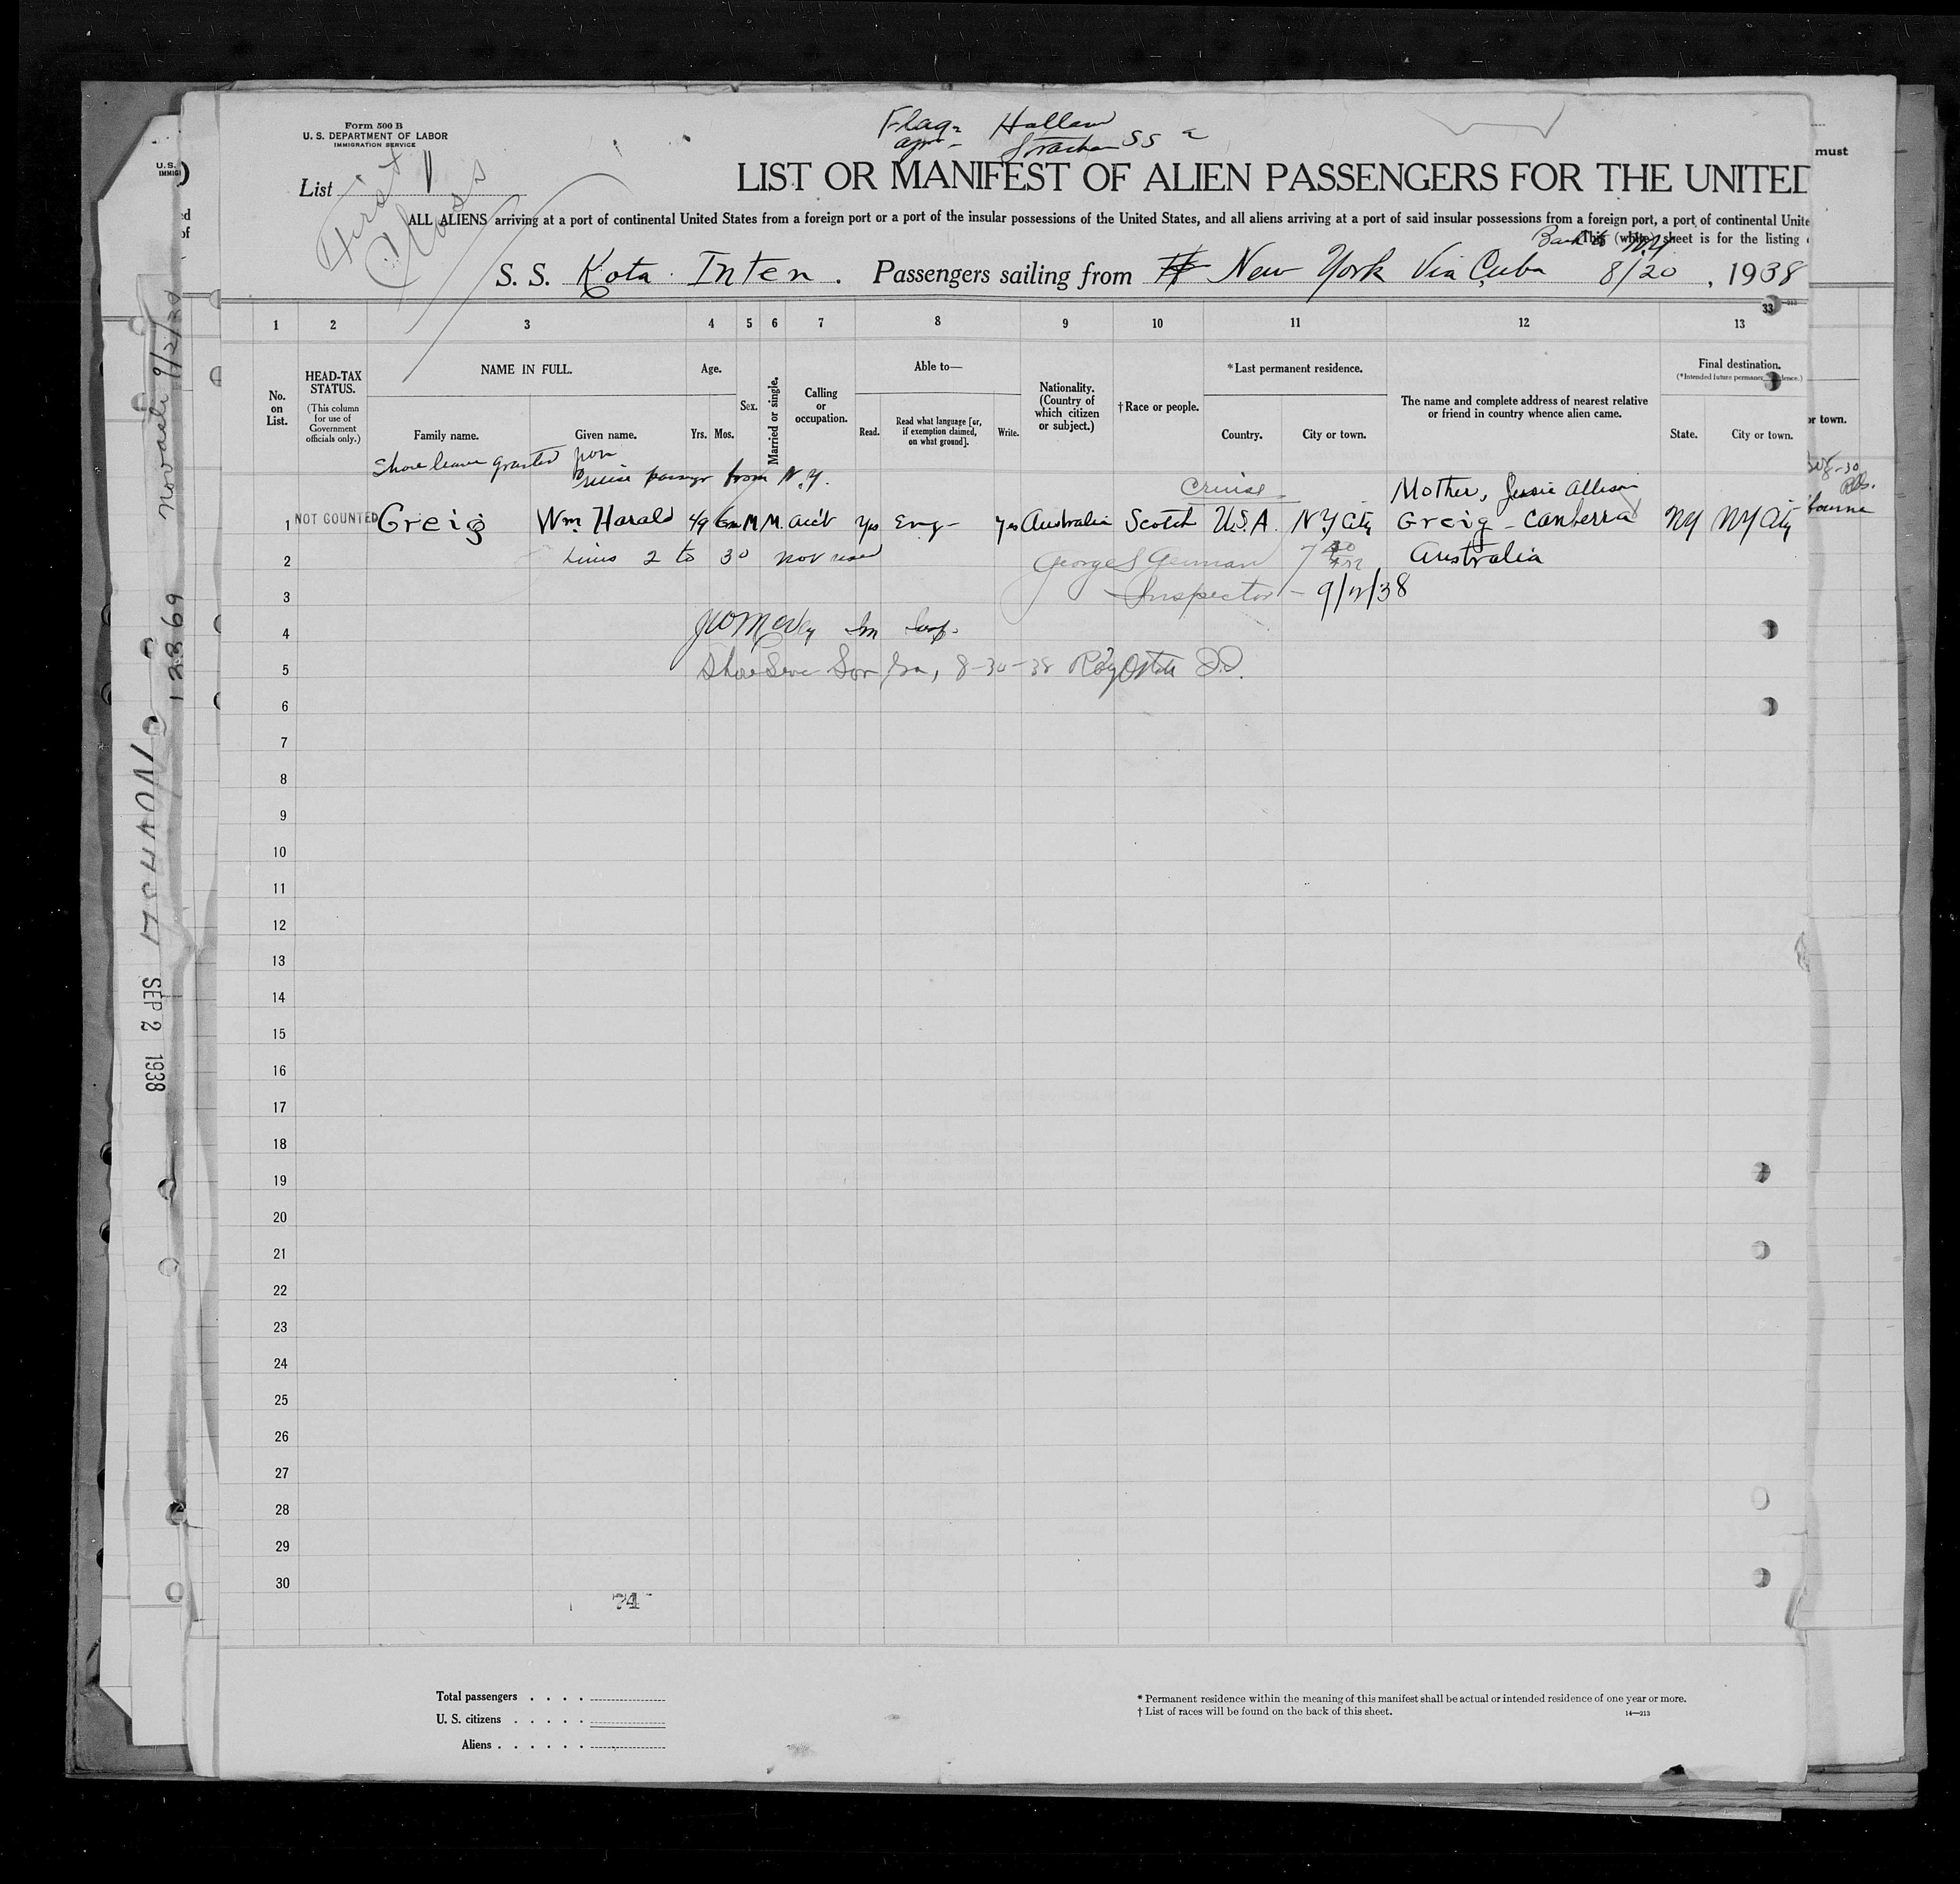 Flag- Holland
Form 500 B
U. S. DEPARTMENT OF LABOR
IMMIGRATION SERVICE
List 1
First Class
LIST OR MANIFEST OF ALIEN PASSENGERS FOR THE UNITED
ALL ALIENS arriving at a port of continental United States from a foreign port or a port of the insular possessions of the United States, and all aliens arriving at a port of said insular possessions from a foreign port, a port of continental Unite
This (white) sheet is for the listing
Back to N.Y.
S. S. Kota Inten. Passengers sailing from New York Via Cuba 8/20, 1938
1 2 3 4 5 6 7 8 9 10 11 12 13
33
HEAD-TAX STATUS. (This column for use of Government officials only.)
No. on List.
NAME IN FULL.
Family name. Given name.
Age.
Yrs. Mos.
Sex.
Married or single.
Calling or occupation.
Able to—
Read. Read what language [or, if exemption claimed, on what ground]. Write.
Nationality. (Country of which citizen or subject.)
† Race or people.
* Last permanent residence.
Country. City or town.
The name and complete address of nearest relative or friend in country whence alien came.
Final destination.
State. City or town.
Shore leave granted
cruise from N.Y.
Cruise
Mother, Jessie Allison
1 NOT COUNTED Greig Wm. Harald 49 M M. Yes Eng- Yes Australia Scotch U.S.A. N.Y City Greig - Canberra NY NY City
2 Lines 2 to 30 not used George S German Australia
3 Inspector - 9/12/38
4
5 8-30-38
6
7
8
9
10
11
12
13
14
15
16
17
18
19
20
21
22
23
24
25
26
27
28
29
30
74
Total passengers
U. S. citizens
Aliens
* Permanent residence within the meaning of this manifest shall be actual or intended residence of one year or more.
† List of races will be found on the back of this sheet.
14—213
U.S.
must
or town.
12369
SEP 2 1938